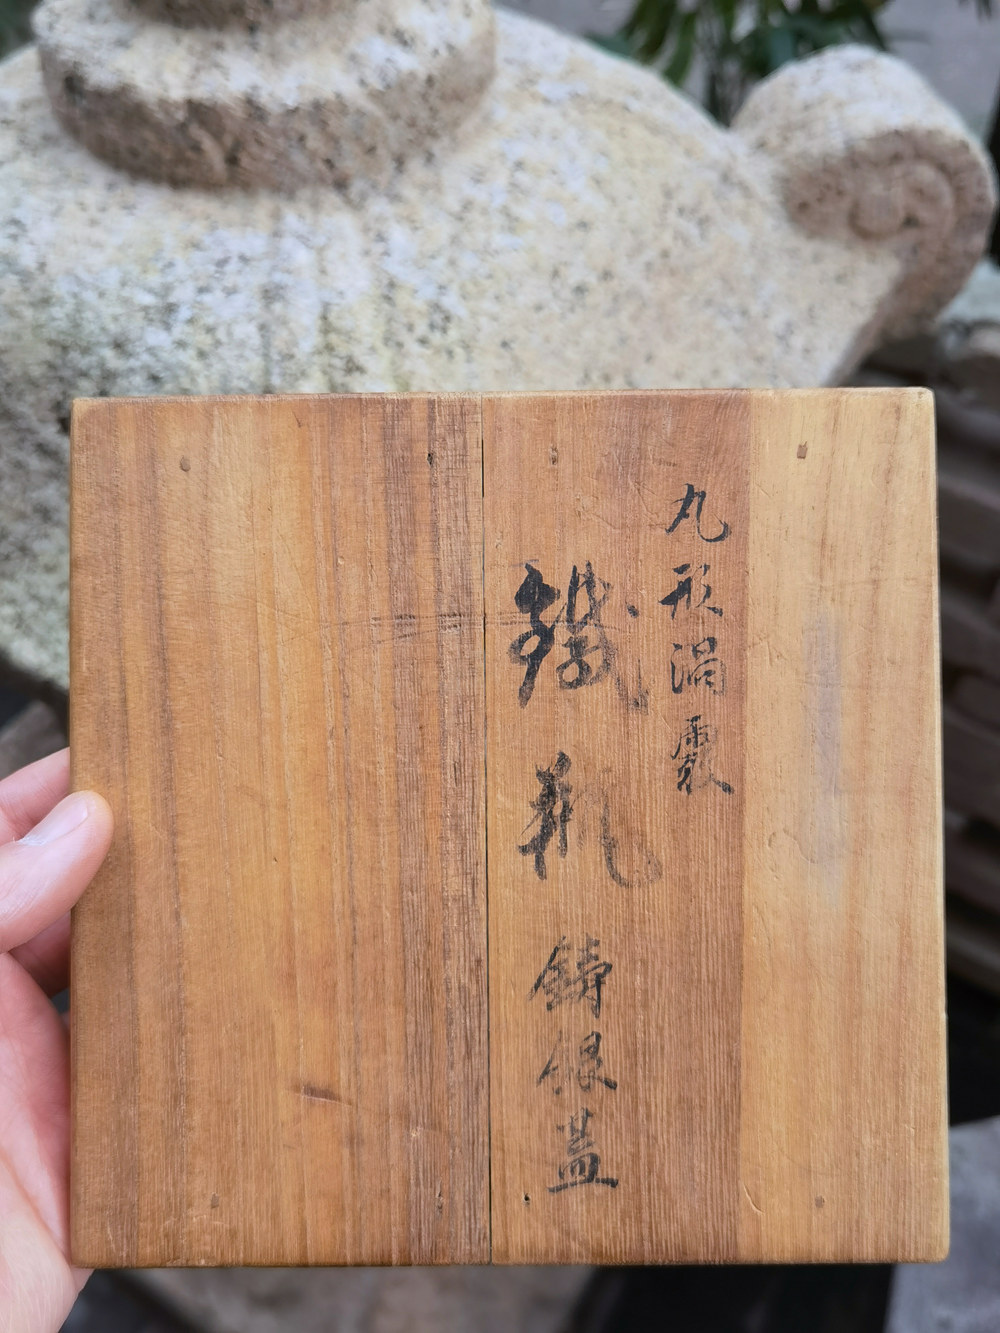 丸形渦霰
鐵瓶
鋳銀蓋